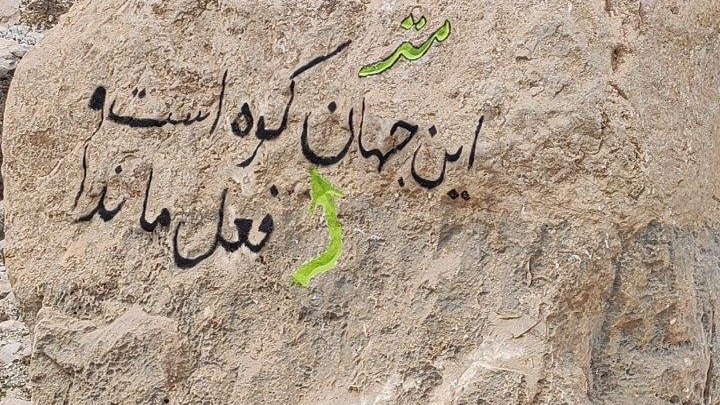 متر
این جهان کوه است و
فعل ما ندا